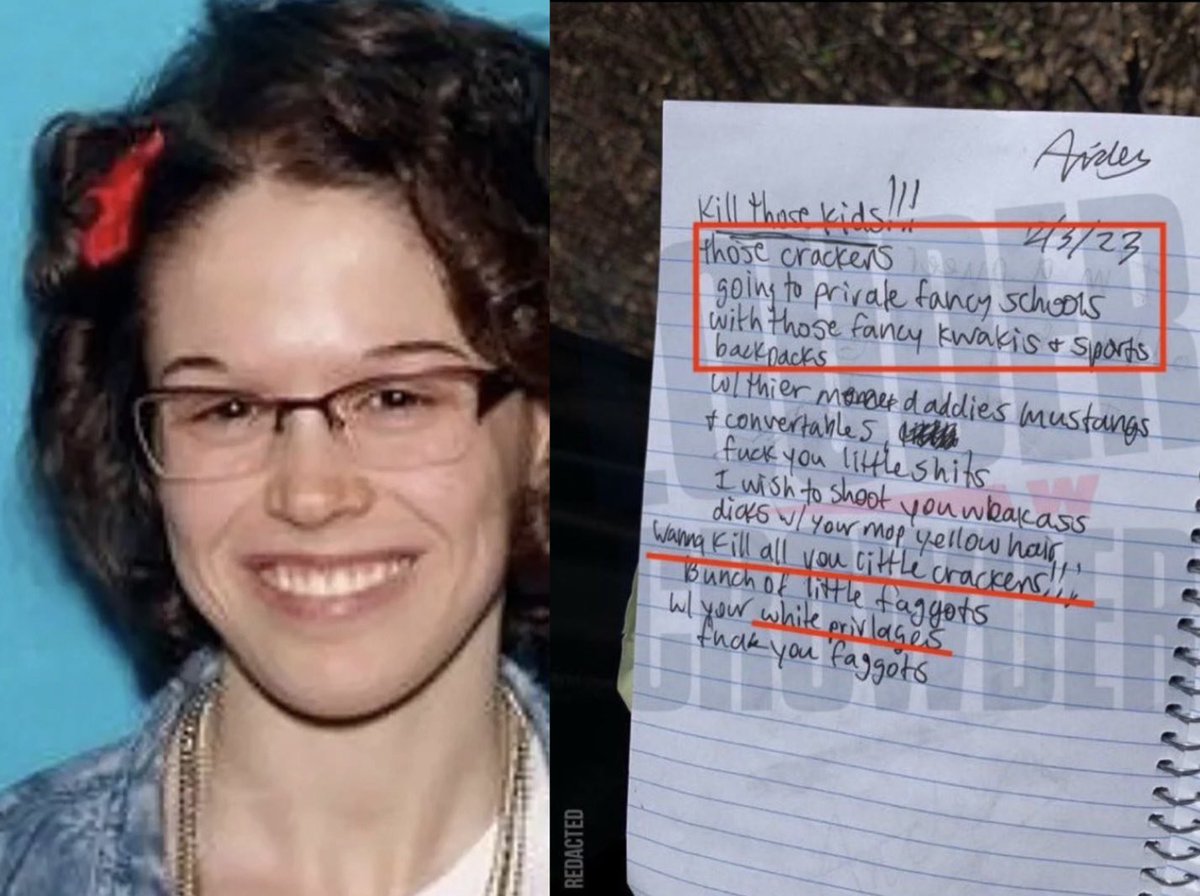 Kill those kids!!!
2/3/23
those crackers
going to private fancy schools
with those fancy kwakis + sports
backpacks
w/ thier daddies mustangs
+ convertables,
fuck you little shits
I wish to shoot you weakass
dicks w/ your mop yellow hair
wanna kill all you little crackers!!!
Bunch of little faggots
w/ your white privlages
fuck you faggots
CROWDER
REDACTED